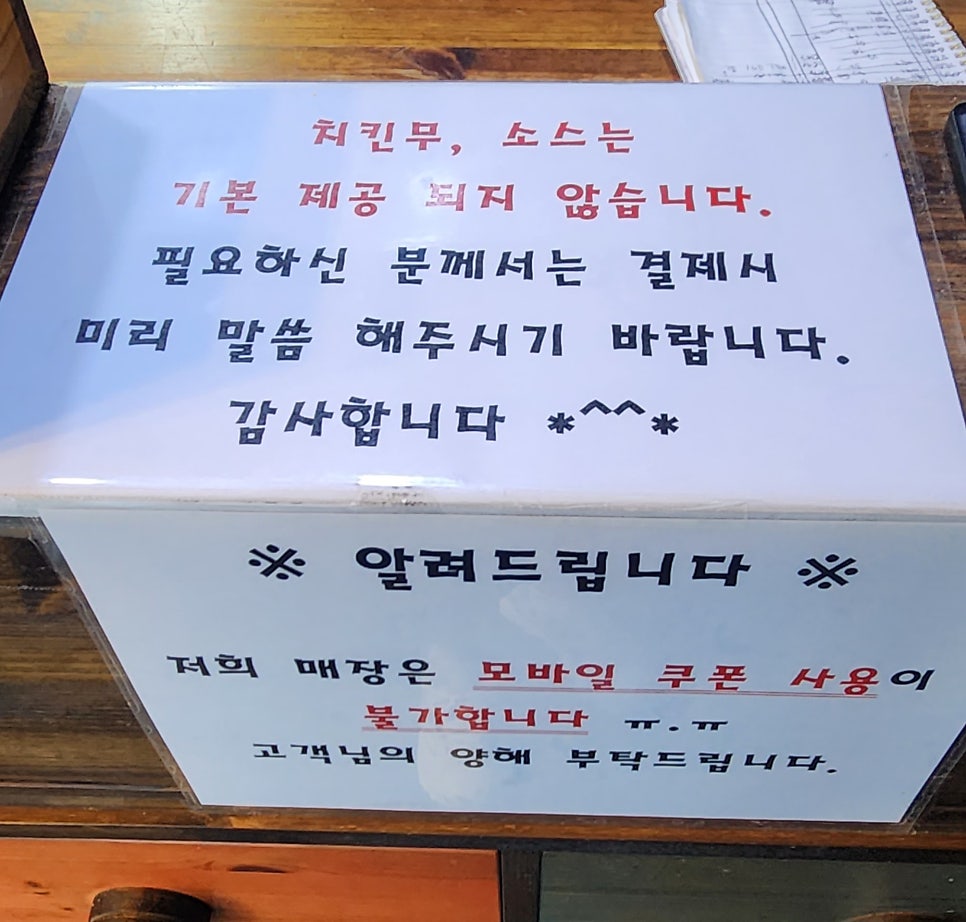 치킨무, 소스는
기본 제공 되지 않습니다.
필요하신 분께서는 결제시
미리 말씀 해주시기 바랍니다.
감사합니다 *^^*
※ 알려드립니다 ※
저희 매장은 모바일 쿠폰 사용이
불가합니다 ㅠ.ㅠ
고객님의 양해 부탁드립니다.